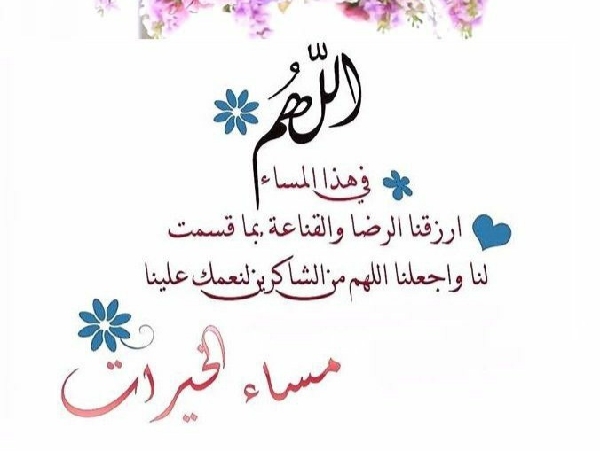 اللهم
في هذا المساء
ارزقنا الرضا والقناعة بما قسمت
لنا واجعلنا اللهم من الشاكرين لنعمك علينا
مساء الخيرات